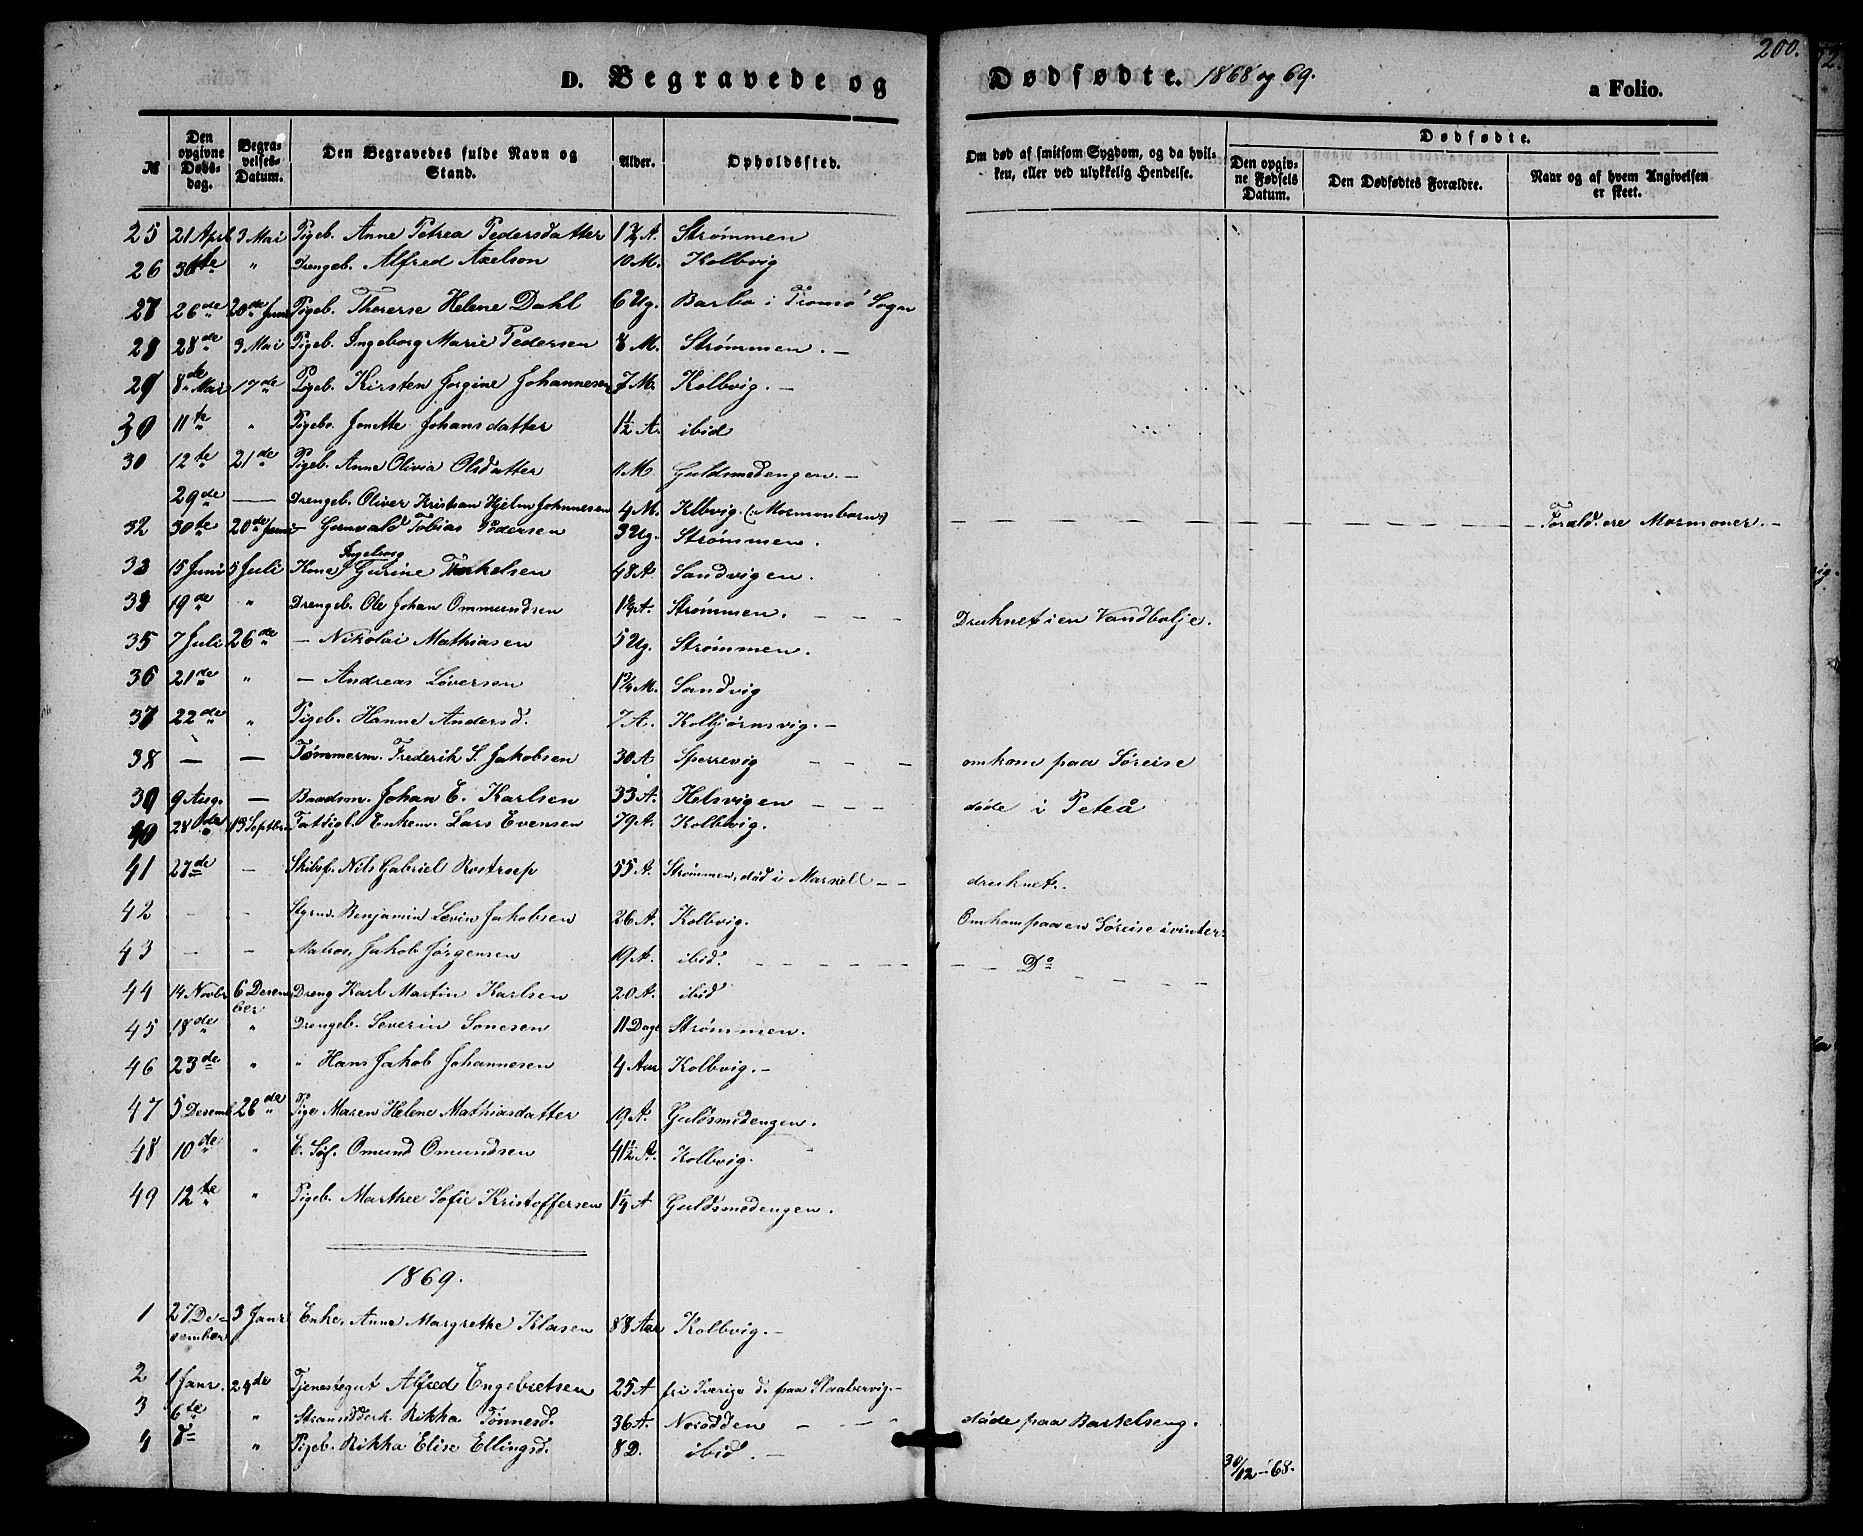 200.
D. Begravede og Dødfødte. 1868 og 69.
a Folio.
№ Den opgivne Dødsdag. Begravelses-Datum. Den Begravedes fulde Navn og Stand. Alder. Opholdssted. Om død af smitsom Sygdom, og da hvilken, eller ved ulykkelig Hendelse. Dødfødte. Den opgivne Fødsels Datum. Den Dødfødtes Forældre. Navn og af hvem Angivelsen er skeet.
25 21 April 3 Mai Pigeb. Anne Petrea Pedersdatter A. Strømmen
26 30te " Drengeb. Alfred Axelson 10 M. Kolbvig
27 26de 20de Juni Pigeb. Therese Helene Dahl 6 Ug. Barbo i Tromø Sogn
28 28de 3 Mai Pigeb. Ingeborg Marie Pedersen 8 M. Strømmen. –
29 8de Mai 17de Pigeb. Kirsten Jorgine Johannesen 7 M. Kolbvig. –
30 11te " Pigeb. Jonette Johansdatter 1½ A. ibid
30 12te 21de Pigeb. Anne Olivia Olsdatter 11 M Guldsmedengen. –
29de — Drengeb. Oliver Kristian Hjelm Johannesen 4 M. Klbvig. (: Mormonbarn:)
32 30te 20de Juni – Gunvald Tobias Pedersen 3 Ug. Strømmen. Foræld. ere Mormoner. –
33 15 Juni 5 Juli Kone Ingeborg Gurine Terkelsen 48 A. Sandvigen.
34 19de " Drengeb. Ole Johan Ommundsen A. Strømmen. – – – Druknet i en Vandbalje.
35 7 Juli 26de – Nikolai Mathiasen 5 Ug. Strømmen.
36 21de " – Andreas Løversen M. Sandvig
37 22de " Pigeb. Hanne Andersd. 7 A. Kolbjørnsvig. –
38 — — Tømmerm. Frederik S. Jakobsen 30 A Sperrevig – – – omkom paa Søreise
39 9 Aug. — Baadsm. Johan E. Karlsen 33 A. Helsvigen – – – døde i Peteå
40 28de 13 Septbr Fattigl. Enkem. Lars Evensen 79 A. Kolbvig.
41 27de – Skibsf. Nils Gabriel Rostroep 55 A. Strømmen, død i Marseill – – druknet.
42 – – Styrm. Benjamin Levin Jakobsen 26 A. Kolbvig. Omkom paa en Søreise i vinter.
43 – – Matros. Jakob Jørgensen 19 A. ibid. – – – Do
44 14 Novbr 6 Desember Dreng Karl Martin Karlsen 20 A. ibid
45 18de " Drengeb. Severin Sonesen 11 Dage Strømmen.
46 23de " " Hans Jakob Johannesen 4 Aar Kolbvig. –
47 5 Desemb. 26de Pige Maren Helene Mathiasdatter 19 A. Guldsmedengen.
48 10de " E. Søf. Omund Omundsen 41½ A. Kolbvig.
49 12te " Pigeb. Marthee Sofie Kristoffersen 1¼ A Guldsmedengen.
1869.
1 27 Desember 3 Janr Enke. Anne Margrethe Klasen 88 Aar Kolbvig. –
2 1 Janr. 24de Tjenestegut Alfred Engebretsen 25 A fri Sverige d. paa Skabervig. –
3 6te " Rikka Tønnesd. 36 A. Nesodden – – – døde paa Barkelseng.
4 d= " Pigeb. Rikka Elise Ellingsd. 8 D. ibid. – 30/12 – 68.